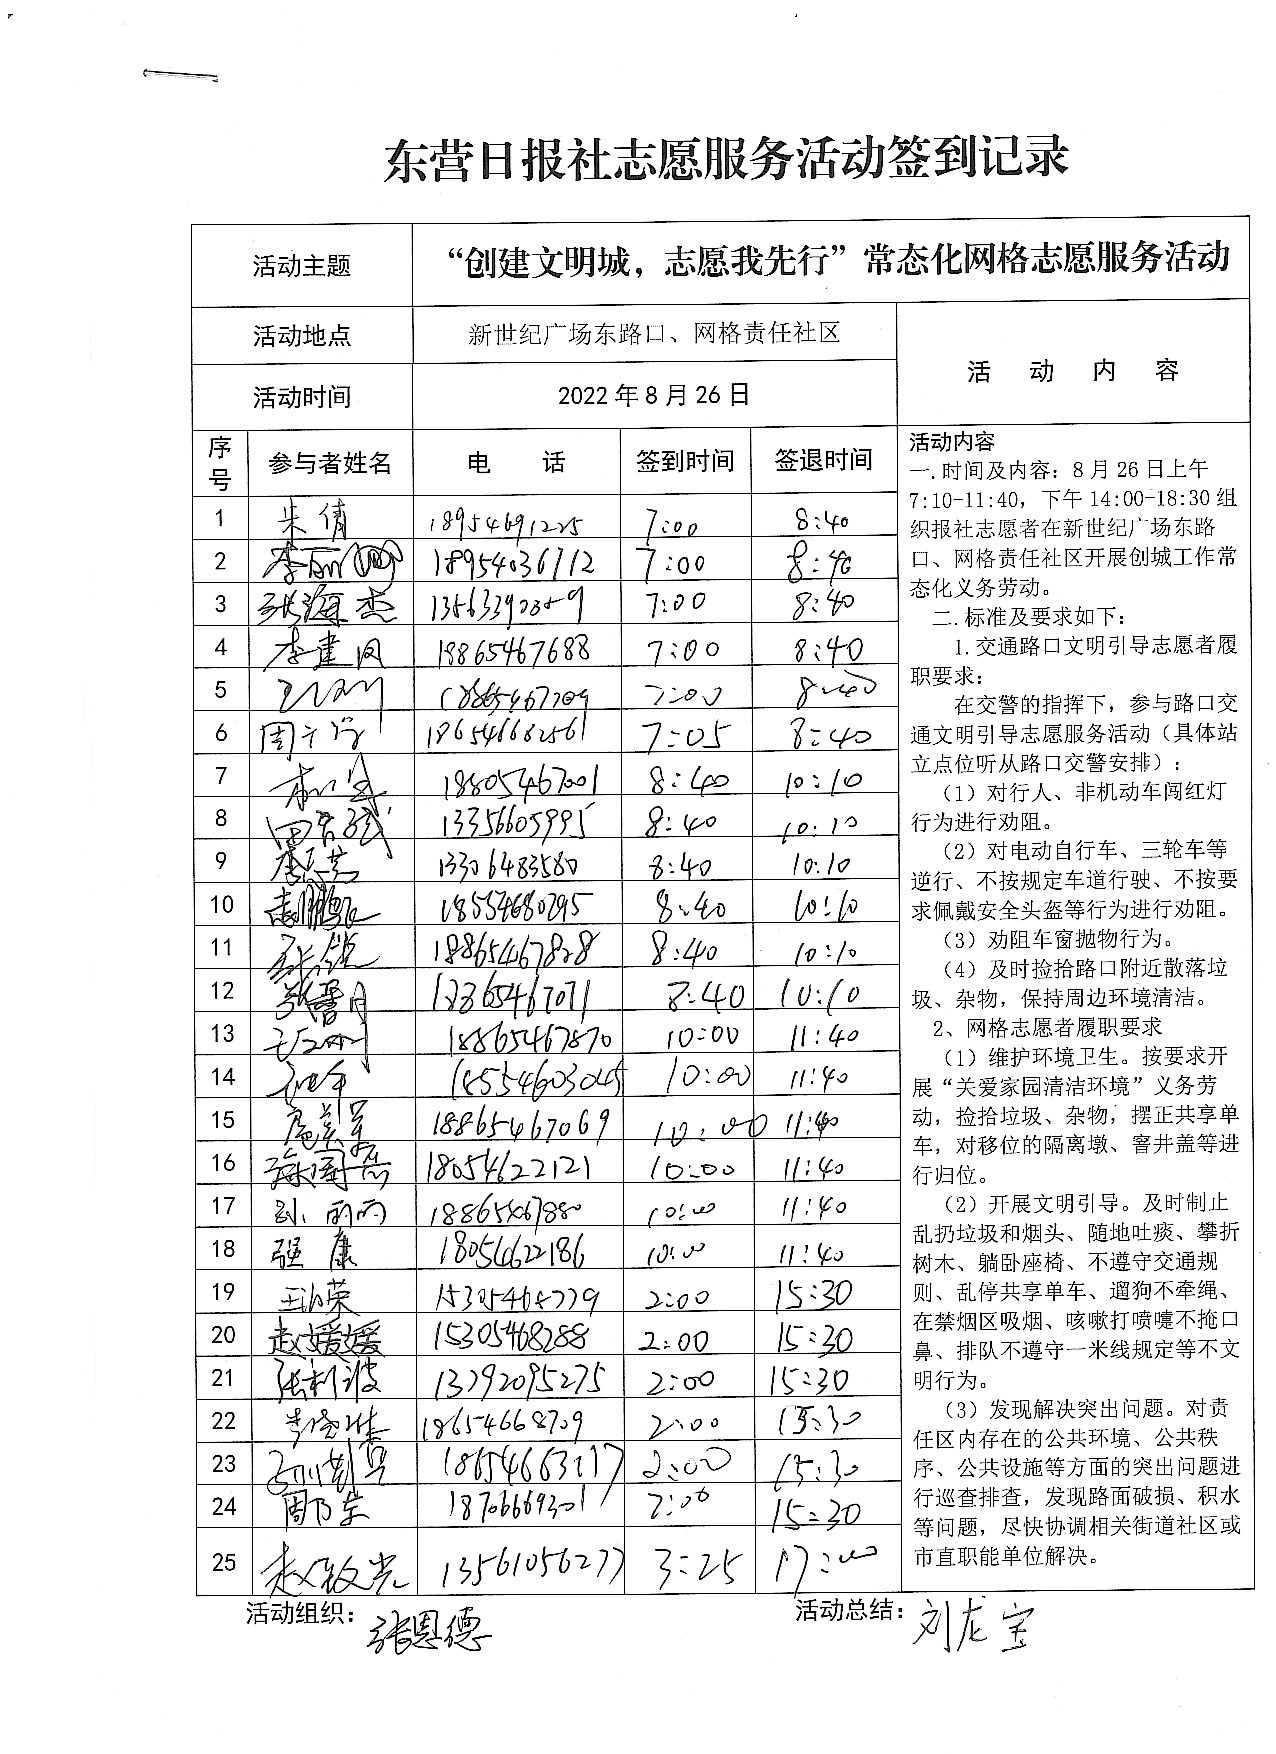 东营日报社志愿服务活动签到记录
活动主题 “创建文明城，志愿我先行”常态化网格志愿服务活动
活动地点 新世纪广场东路口、网格责任社区
活动时间 2022年8月26日
活动内容
序号 参与者姓名 电话 签到时间 签退时间
1 朱倩 18954691225 7:00 8:40
2 李丽 18954036712 7:00 8:40
3 张海杰 7:00 8:40
4 李建风 18865467688 7:00 8:40
5 18865467709 7:00 8:40
6 18654682561 7:05 8:40
7 18805467001 8:40 10:10
8 13356605995 8:40 10:10
9 13306483580 8:40 10:10
10 18554680295 8:40 10:10
11 张锐 18865467828 8:40 10:10
12 8:40 10:10
13 18865467870 10:00 11:40
14 18554603045 10:00 11:40
15 18865467069 10:00 11:40
16 18054622121 10:00 11:40
17 孙丽丽 18865467880 10:00 11:40
18 强康 18054622186 10:00 11:40
19 2:00 15:30
20 赵媛媛 15305468288 2:00 15:30
21 张利波 13792095275 2:00 15:30
22 18654668709 2:00 15:30
23 2:00 15:30
24 18706669301 2:00 15:30
25 赵敏光 13561056277 3:25 17:00
活动内容
一.时间及内容：8月26日上午
7:10-11:40，下午14:00-18:30组
织报社志愿者在新世纪广场东路
口、网格责任社区开展创城工作常
态化义务劳动。
二.标准及要求如下：
1.交通路口文明引导志愿者履
职要求：
在交警的指挥下，参与路口交
通文明引导志愿服务活动（具体站
立点位听从路口交警安排）：
（1）对行人、非机动车闯红灯
行为进行劝阻。
（2）对电动自行车、三轮车等
逆行、不按规定车道行驶、不按要
求佩戴安全头盔等行为进行劝阻。
（3）劝阻车窗抛物行为。
（4）及时捡拾路口附近散落垃
圾、杂物，保持周边环境清洁。
2、网格志愿者履职要求
（1）维护环境卫生。按要求开
展“关爱家园清洁环境”义务劳
动，捡拾垃圾、杂物，摆正共享单
车，对移位的隔离墩、窨井盖等进
行归位。
（2）开展文明引导。及时制止
乱扔垃圾和烟头、随地吐痰、攀折
树木、躺卧座椅、不遵守交通规
则、乱停共享单车、遛狗不牵绳、
在禁烟区吸烟、咳嗽打喷嚏不掩口
鼻、排队不遵守一米线规定等不文
明行为。
（3）发现解决突出问题。对责
任区内存在的公共环境、公共秩
序、公共设施等方面的突出问题进
行巡查排查，发现路面破损、积水
等问题，尽快协调相关街道社区或
市直职能单位解决。
活动组织：张恩德 活动总结：刘龙宝